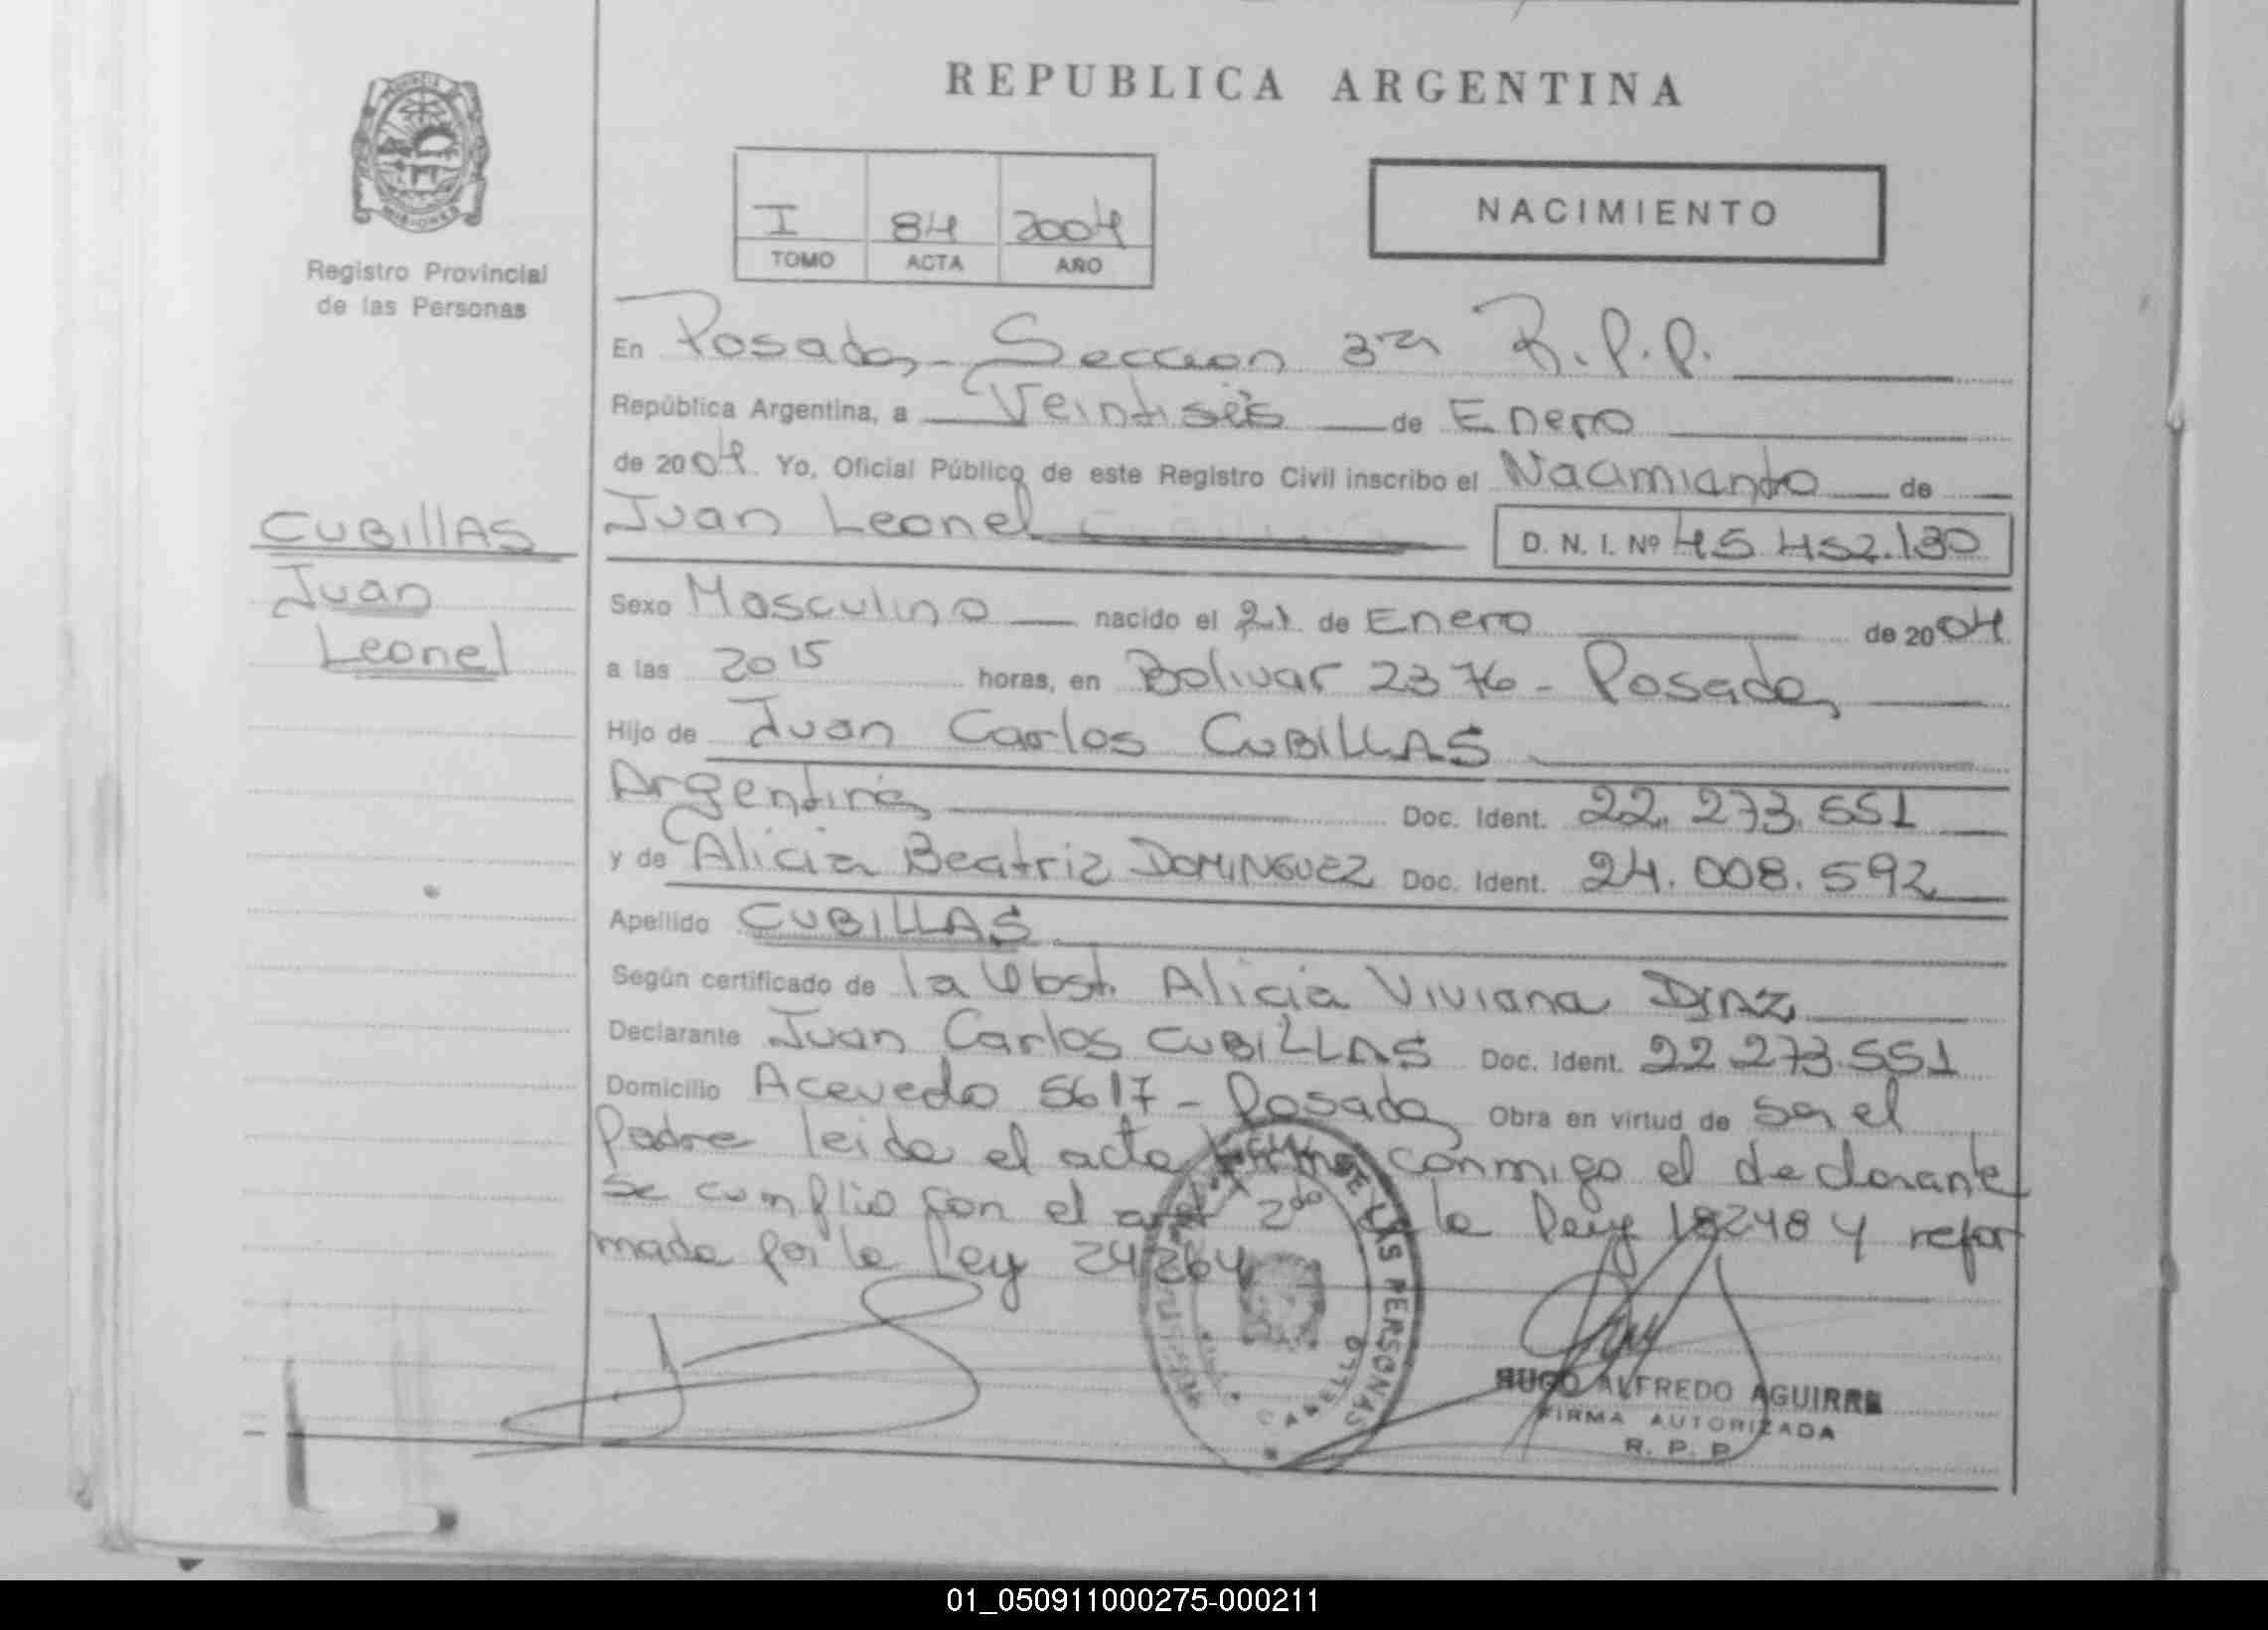 REPUBLICA ARGENTINA
MISIONES
Registro Provincial
de las Personas
I 84 2004
TOMO ACTA AÑO
NACIMIENTO
En Posadas - Seccion 3ra R.P.P.
República Argentina, a Veintiseis de Enero
de 2004. Yo, Oficial Público de este Registro Civil inscribo el Nacimiento de
Juan Leonel D. N. I. Nº 45.452.130
CUBIllAS
Juan
Leonel
Sexo Masculino nacido el 21 de Enero de 2004
a las 20 15 horas, en Bolivar 2376 - Posadas
Hijo de Juan Carlos CUBILLAS
Argentinos Doc. Ident. 22.273.551
y de Alicia Beatriz DOMINGUEZ Doc. Ident. 24.008.592
Apellido CUBILLAS
Según certificado de la Obst. Alicia Viviana DIAZ
Declarante Juan Carlos CUBILLAS Doc. Ident. 22.273.551
Domicilio Acevedo 5617 - Posadas Obra en virtud de ser el
Padre leida el acta firma conmigo el declarante
se cumplio con el art 2do de la Ley 18248 y refor
mada por la Ley 24264
DE LAS PERSONAS
HUGO ALFREDO AGUIRRE
FIRMA AUTORIZADA
R. P. P.
01_050911000275-000211